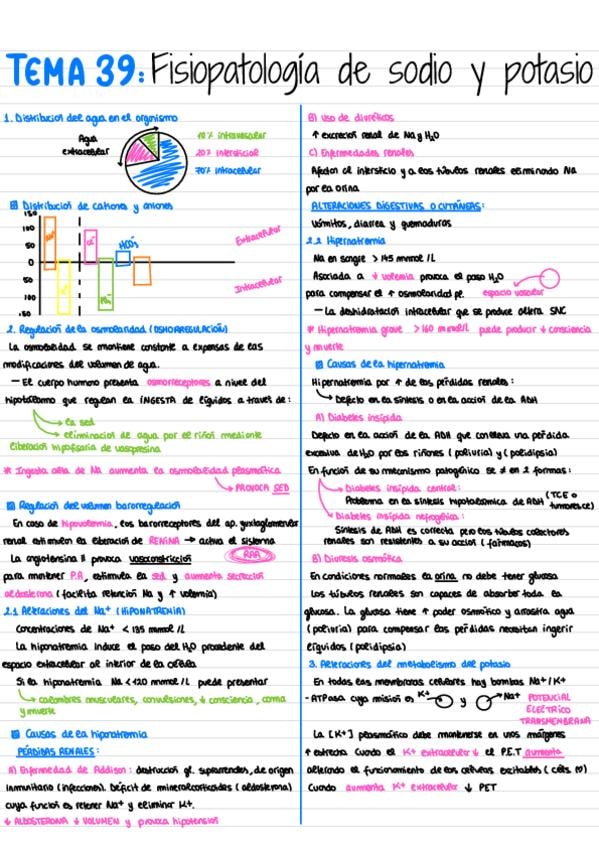 TEMA 39: Fisiopatología de sodio y potasio
1. Distribución del agua en el organismo
Agua
extracelular
10% intravascular
20% intersticial
70% intracelular
Distribución de cationes y aniones
150
100
50
0
50
100
150
HCO3
Extracelular
Intracelular
2. Regulación de la osmolaridad (OSMORREGULACIÓN)
La osmolaridad se mantiene constante a expensas de las
modificaciones del volumen de agua.
— El cuerpo humano presenta osmorreceptores a nivel del
hipotálamo que regulan la INGESTA de líquidos a través de:
la sed
eliminación de agua por el riñón mediante
liberación hipofisaria de vasopresina
* Ingesta alta de Na aumenta la osmolaridad plasmática
→ PROVOCA SED
Regulación del volumen barorregulación
En caso de hipovolemia, los barorreceptores del ap. yuxtaglomerular
renal estimulan la liberación de RENINA → activa el sistema
RAA
La angiotensina II provoca vasoconstricción
para mantener P.A, estimula la sed y aumenta secreción
aldosterona (facilita retención Na y ↑ volemia)
2.1 Alteraciones del Na+ (HIPONATREMIA)
Concentraciones de Na+ < 135 mmol/L
La hiponatremia induce el paso del H2O procedente del
espacio extracelular al interior de la célula
Si la hiponatremia Na < 120 mmol/L puede presentar
calambres musculares, convulsiones, ↓ consciencia, coma
y muerte
Causas de la hiponatremia
PÉRDIDAS RENALES:
A) Enfermedad de Addison: destrucción gl. suprarrenales, de origen
inmunitario (infecciones). Déficit de mineralcorticoides (aldosterona)
cuya función es retener Na+ y eliminar K+.
↓ ALDOSTERONA ↓ VOLUMEN y provoca hipotensión
B) Uso de diuréticos
↑ excreción renal de Na y H2O
C) Enfermedades renales
Afectan al intersticio y a los túbulos renales eliminando Na
por la orina
ALTERACIONES DIGESTIVAS O CUTÁNEAS:
Vómitos, diarrea y quemaduras
2.2 Hipernatremia
Na en sangre > 145 mmol/L
Asociada a ↓ volemia provoca el paso H2O
para compensar el ↑ osmolaridad pl. espacio vascular
— La deshidratación intracelular que se produce altera SNC
* Hipernatremia grave > 160 mmol/L puede producir ↓ consciencia
y muerte
Causas de la hipernatremia
Hipernatremia por ↑ de las pérdidas renales:
Defecto en la síntesis o en la acción de la ADH
A) Diabetes insípida
Defecto en la acción de la ADH que conlleva una pérdida
excesiva de H2O por los riñones (poliuria) y (polidipsia)
En función de su mecanismo patogénico se ≠ en 2 formas:
Diabetes insípida central:
Problema en la síntesis hipotalámica de ADH (TCE o
tumores ce)
Diabetes insípida nefrogénica:
Síntesis de ADH es correcta pero los túbulos colectores
renales son resistentes a su acción (fármacos)
B) Diuresis osmótica
En condiciones normales la orina no debe tener glucosa
Los túbulos renales son capaces de absorber toda la
glucosa. La glucosa tiene ↑ poder osmótico y arrastra agua
(poliuria) para compensar las pérdidas necesitan ingerir
líquidos (polidipsia)
3. Alteraciones del metabolismo del potasio
En todas las membranas celulares hay bombas Na+/K+
- ATPasa cuya misión es K+ y Na+ POTENCIAL
ELÉCTRICO
TRANSMEMBRANA
La [K+] plasmático debe mantenerse en unos márgenes
↑ estrecho Cuando el K+ extracelular ↓ el P.E.T aumenta
alterando el funcionamiento de las células excitables
Cuando aumenta K+ extracelular ↓ PET